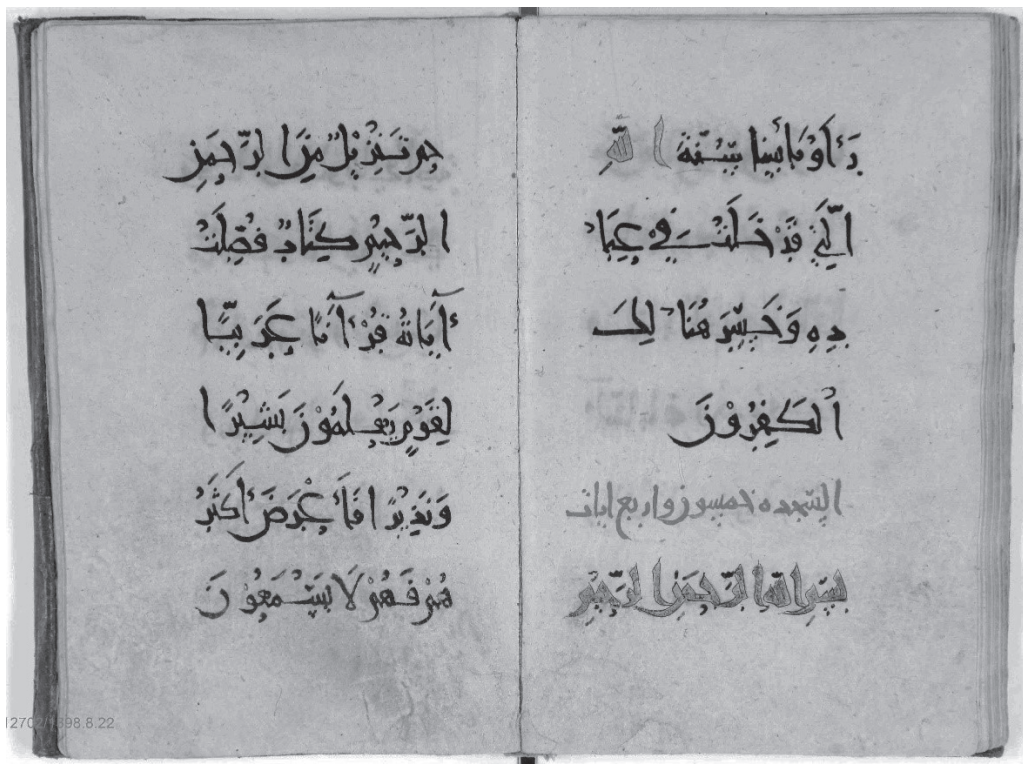 رَأَوْ بَأْسَنَا سُنَّةَ اللَّهِ
الَّتِي قَدْ خَلَتْ فِي عِبَا
دِهِ وَخَسِرَ هُنَالِكَ
الْكَفِرُوْنَ
السجده خمسون واربع ايات
بِسْمِ اللَّهِ الرَّحْمَنِ الرَّحِيْمِ
حم تَنْزِيْلٌ مِنَ الرَّحْمَنِ
الرَّحِيْمِ كِتَابٌ فُصِّلَتْ
آيَاتُهُ قُرْآنًا عَرَبِيًّا
لِقَوْمٍ يَعْلَمُوْنَ بَشِيْرًا
وَنَذِيْرًا فَأَعْرَضَ أَكْثَرُ
هُمْ فَهُمْ لَا يَسْمَعُوْنَ
12702/1398.8.22